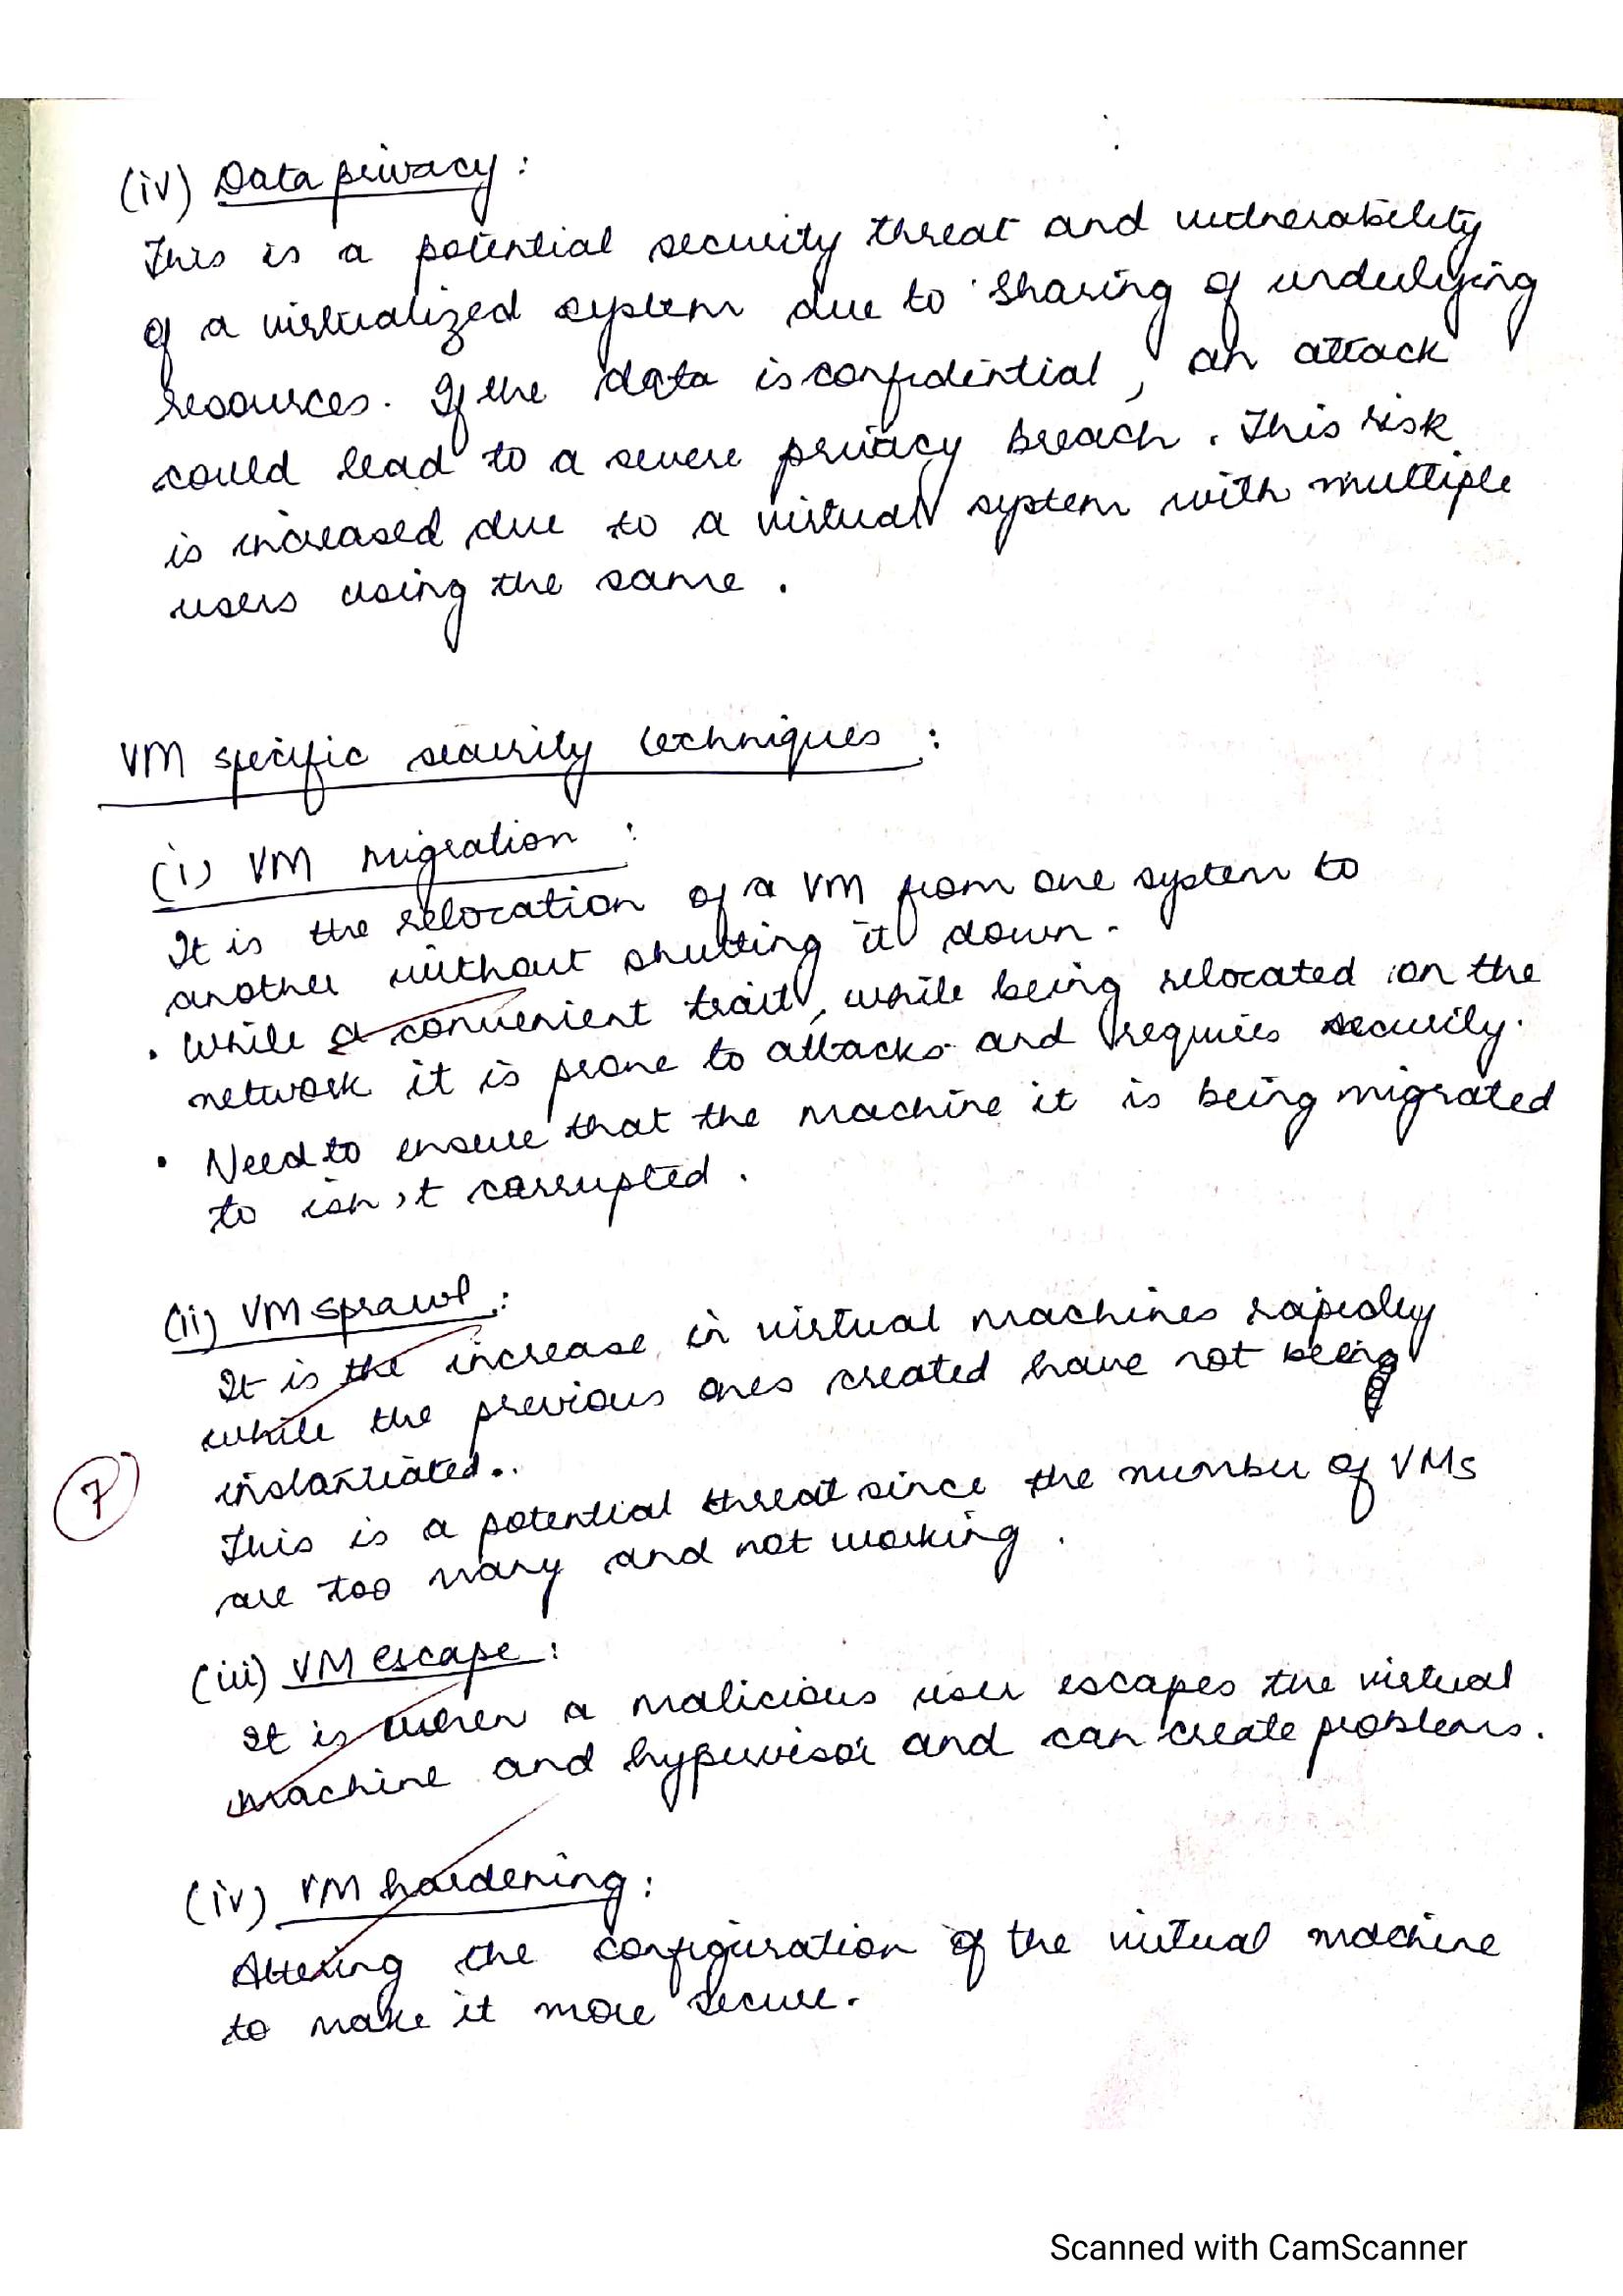 (iv) Data privacy :
This is a potential security threat and vulnerability
of a virtualized system due to sharing of underlying
resources. If the data is confidential, an attack
could lead to a severe privacy breach. This risk
is increased due to a virtual system with multiple
users using the same.
VM specific security techniques :
(i) VM migration :
It is the relocation of a VM from one system to
another without shutting it down.
• While a convenient trait, while being relocated on the
network it is prone to attacks and requires security.
• Need to ensure that the machine it is being migrated
to isn't corrupted.
(ii) VM sprawl :
It is the increase in virtual machines rapidly
while the previous ones created have not being
instantiated..
7
This is a potential threat since the number of VMs
are too many and not working.
(iii) VM escape :
It is when a malicious user escapes the virtual
machine and hypervisor and can create problems.
(iv) VM hardening :
Altering the configuration of the virtual machine
to make it more secure.
Scanned with CamScanner